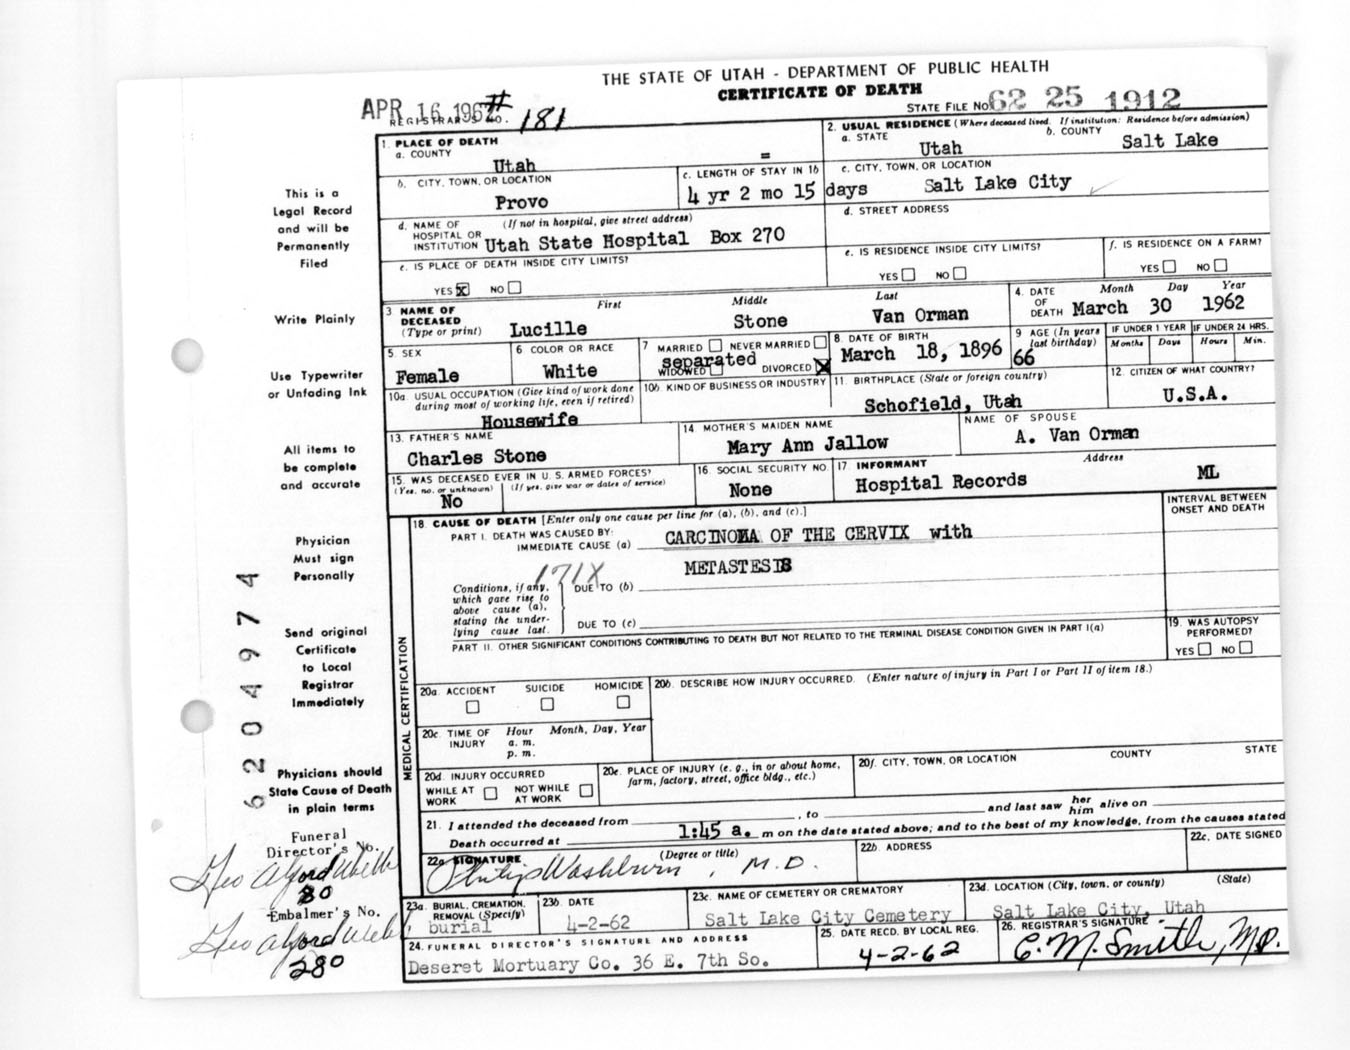 THE STATE OF UTAH - DEPARTMENT OF PUBLIC HEALTH
CERTIFICATE OF DEATH
APR 16 1962 #
REGISTRAR'S NO. 181
STATE FILE NO. 62 25 1912
1. PLACE OF DEATH
a. COUNTY
Utah
2. USUAL RESIDENCE (Where deceased lived. If institution: Residence before admission)
a. STATE Utah b. COUNTY Salt Lake
b. CITY, TOWN, OR LOCATION
Provo
c. LENGTH OF STAY IN 1b
4 yr 2 mo 15 days
c. CITY, TOWN, OR LOCATION
Salt Lake City
d. NAME OF HOSPITAL OR INSTITUTION (If not in hospital, give street address)
Utah State Hospital Box 270
d. STREET ADDRESS
e. IS PLACE OF DEATH INSIDE CITY LIMITS?
YES X NO
e. IS RESIDENCE INSIDE CITY LIMITS?
YES NO
f. IS RESIDENCE ON A FARM?
YES NO
3 NAME OF DECEASED (Type or print)
First Middle Last
Lucille Stone Van Orman
4. DATE OF DEATH Month Day Year
March 30 1962
5. SEX
Female
6 COLOR OR RACE
White
7 MARRIED NEVER MARRIED
separated
WIDOWED DIVORCED X
8. DATE OF BIRTH
March 18, 1896
9 AGE (In years last birthday)
66
IF UNDER 1 YEAR IF UNDER 24 HRS.
Months Days Hours Min.
10a. USUAL OCCUPATION (Give kind of work done during most of working life, even if retired)
Housewife
10b. KIND OF BUSINESS OR INDUSTRY
11. BIRTHPLACE (State or foreign country)
Schofield, Utah
12. CITIZEN OF WHAT COUNTRY?
U.S.A.
13. FATHER'S NAME
Charles Stone
14. MOTHER'S MAIDEN NAME
Mary Ann Jallow
NAME OF SPOUSE
A. Van Orman
15. WAS DECEASED EVER IN U. S. ARMED FORCES?
(Yes, no, or unknown) (If yes, give war or dates of service)
No
16. SOCIAL SECURITY NO.
None
17. INFORMANT Address
Hospital Records ML
MEDICAL CERTIFICATION
18. CAUSE OF DEATH [Enter only one cause per line for (a), (b), and (c).]
INTERVAL BETWEEN ONSET AND DEATH
PART I. DEATH WAS CAUSED BY:
IMMEDIATE CAUSE (a) CARCINOMA OF THE CERVIX with
METASTESIS
171X
Conditions, if any, which gave rise to above cause (a), stating the underlying cause last.
DUE TO (b)
DUE TO (c)
PART II. OTHER SIGNIFICANT CONDITIONS CONTRIBUTING TO DEATH BUT NOT RELATED TO THE TERMINAL DISEASE CONDITION GIVEN IN PART I(a)
19. WAS AUTOPSY PERFORMED?
YES NO
20a. ACCIDENT SUICIDE HOMICIDE
20b. DESCRIBE HOW INJURY OCCURRED. (Enter nature of injury in Part I or Part II of item 18.)
20c. TIME OF INJURY Hour Month, Day, Year
a. m.
p. m.
20d. INJURY OCCURRED
WHILE AT WORK NOT WHILE AT WORK
20e. PLACE OF INJURY (e. g., in or about home, farm, factory, street, office bldg., etc.)
20f. CITY, TOWN, OR LOCATION COUNTY STATE
21. I attended the deceased from , to and last saw her him alive on
Death occurred at 1:45 a. m on the date stated above; and to the best of my knowledge, from the causes stated
22a SIGNATURE (Degree or title)
Philip Washburn, M.D.
22b. ADDRESS
22c. DATE SIGNED
23a. BURIAL, CREMATION, REMOVAL (Specify)
burial
23b. DATE
4-2-62
23c. NAME OF CEMETERY OR CREMATORY
Salt Lake City Cemetery
23d. LOCATION (City, town, or county) (State)
Salt Lake City, Utah
24. FUNERAL DIRECTOR'S SIGNATURE AND ADDRESS
Deseret Mortuary Co. 36 E. 7th So.
25. DATE RECD. BY LOCAL REG.
4-2-62
26. REGISTRAR'S SIGNATURE
C. M. Smith, MD.
This is a
Legal Record
and will be
Permanently
Filed
Write Plainly
Use Typewriter
or Unfading Ink
All items to
be complete
and accurate
Physician
Must sign
Personally
Send original
Certificate
to Local
Registrar
Immediately
Physicians should
State Cause of Death
in plain terms
Funeral
Director's No.
80
Embalmer's No.
280
6204974